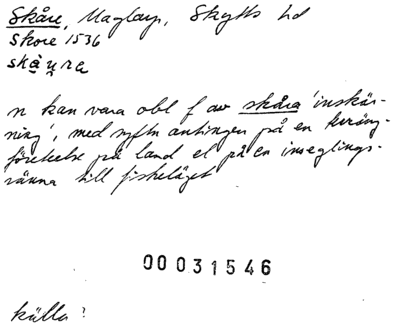 Skåre, Maglarp, Skytts hd
Skore 1536
skạ̊u̯ra
n kan vara obl f av skåra 'inskär-
ning', med syftn antingen på en terräng-
företeelse på land el på en inseglings-
ränna till fiskeläget
00031546
källa?